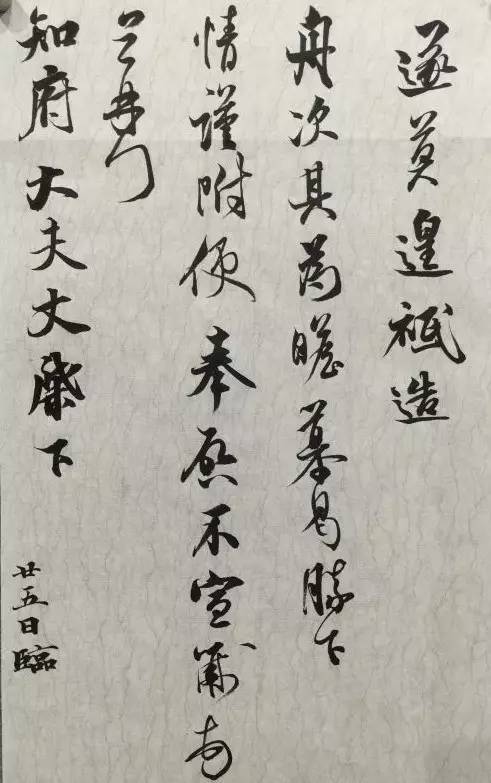 遂莫遑祗造
舟次其為瞻慕曷勝下
情謹附便奉啓不宣
知府大夫丈棨下
廿五日臨